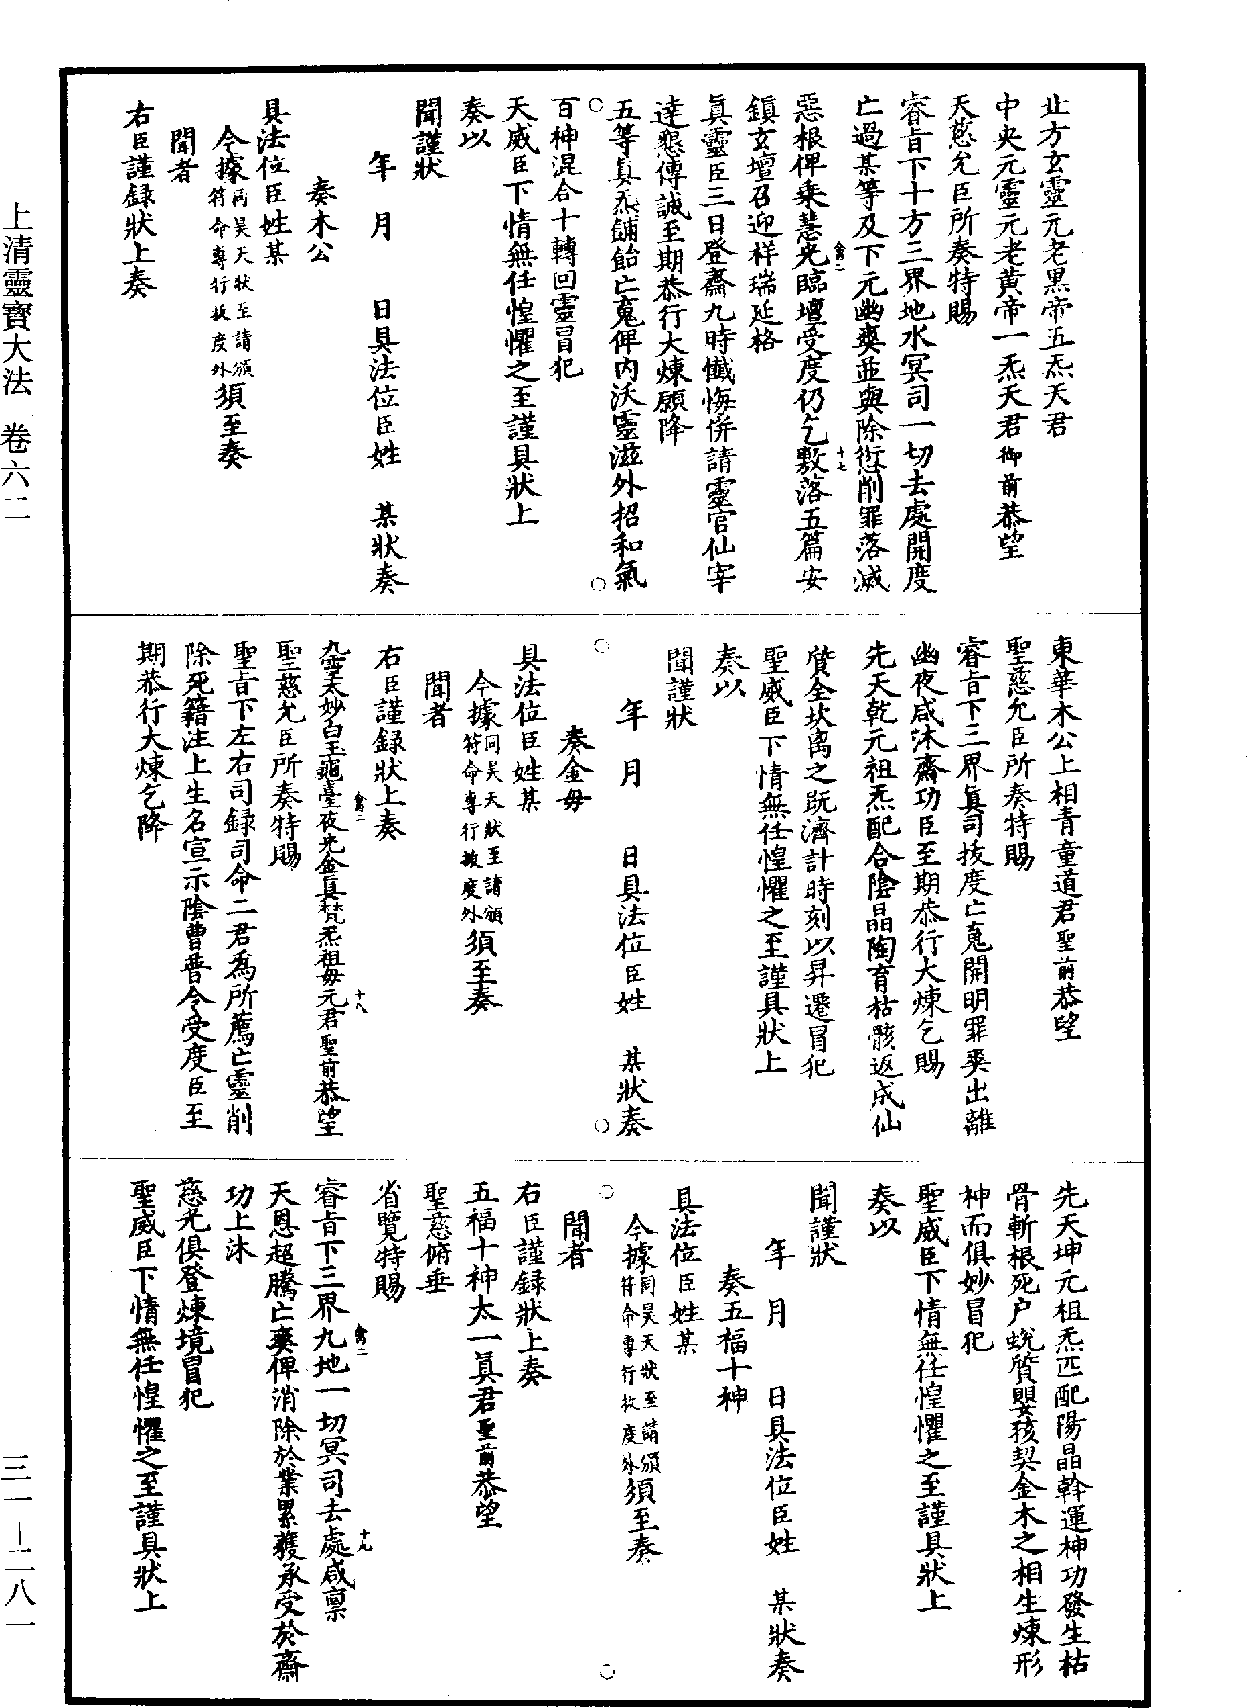 北方玄靈元老黑帝五炁天君
中央元靈元老黃帝一炁天君御前恭望
天慈允臣所奏特賜
睿旨下十方三界地水冥司一切去處開度
亡過某等及下元幽爽並與除愆削罪落滅
惡根俾乘慧光臨壇受度仍乞敷落五篇安
鎮玄壇召迎祥瑞延格
真靈臣三日登齋九時懺悔併請靈官仙宰
達懇傳誠至期恭行大煉願降
五等真炁餔飴亡䰟俾內沃靈滋外招和氣
百神混合十轉回靈冒犯
天威臣下情無任惶懼之至謹具狀上
奏以
聞謹狀
年 月 日具法位臣姓 某狀奏
奏木公
具法位臣姓某
今據同昊天狀至請頒符命專行拔度外須至奏
聞者
右臣謹録狀上奏
東華木公上相青童道君聖前恭望
聖慈允臣所奏特賜
睿旨下三界真司拔度亡䰟開明罪爽出離
幽夜咸沐齋功臣至期恭行大煉乞賜
先天乾元祖炁配合陰晶陶育枯骸返成仙
質全坎离之既濟計時刻以昇遷冒犯
聖威臣下情無任惶懼之至謹具狀上
奏以
聞謹狀
年 月 日具法位臣姓 某狀奏
奏金母
具法位臣姓某
今據同昊天狀至請頒符命專行拔度外須至奏
聞者
右臣謹録狀上奏
九靈太妙白玉龜臺夜光金真梵炁祖母元君聖前恭望
聖慈允臣所奏特賜
聖旨下左右司録司命二君為所薦亡靈削
除死籍注上生名宣示陰曹普令受度臣至
期恭行大煉乞降
先天坤元祖炁匹配陽晶斡運神功發生枯
骨斬根死户蛻質嬰孩契金木之相生煉形
神而俱妙冒犯
聖威臣下情無任惶懼之至謹具狀上
奏以
聞謹狀
年 月 日具法位臣姓 某狀奏
奏五福十神
具法位臣姓某
今據同昊天狀至請頒符命專行拔度外須至奏
聞者
右臣謹録狀上奏
五福十神太一真君聖前恭望
聖慈俯垂
省覽特賜
睿旨下三界九地一切冥司去處咸禀
天恩超騰亡爽俾消除於業累獲承受於齋
功上沐
慈光俱登煉境冒犯
聖威臣下情無任惶懼之至謹具狀上
禽二
十七
禽二
十八
禽二
十九
上清靈寶大法 卷六二
三一—二八一